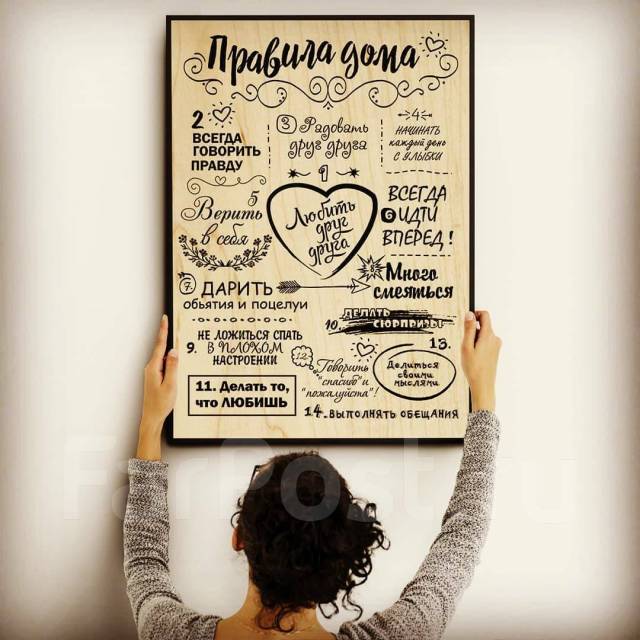 Правила дома
2
ВСЕГДА
ГОВОРИТЬ
ПРАВДУ
3 Радовать
друг друга
4
НАЧИНАТЬ
каждый день
С УЛЫБКИ
1
Любить
друг
друга
5
Верить
в себя
ВСЕГДА
6 ИДТИ
ВПЕРЕД!
7
ДАРИТЬ
обьятия и поцелуи
8
Много
смеяться
9.
НЕ ЛОЖИТЬСЯ СПАТЬ
В ПЛОХОМ
НАСТРОЕНИИ
10.
ДЕЛАТЬ
СЮРПРИЗЫ
11. Делать то,
что ЛЮБИШЬ
12.
Говорить
"спасибо" и
"пожалуйста"!
13.
Делиться
своими
мыслями
14. ВЫПОЛНЯТЬ ОБЕЩАНИЯ
FarPost.ru